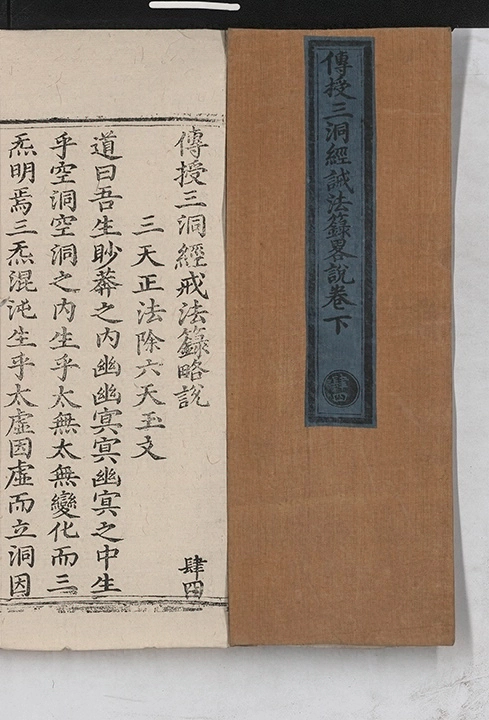 傳授三洞經誡法籙畧說卷下
肆四
傳授三洞經戒法籙略說
肆四
三天正法除六天玉文
道曰吾生眇莽之內幽幽冥冥幽冥之中生
乎空洞空洞之內生乎太無太無變化而三
炁明焉三炁混沌生乎太虛因虛而立洞因